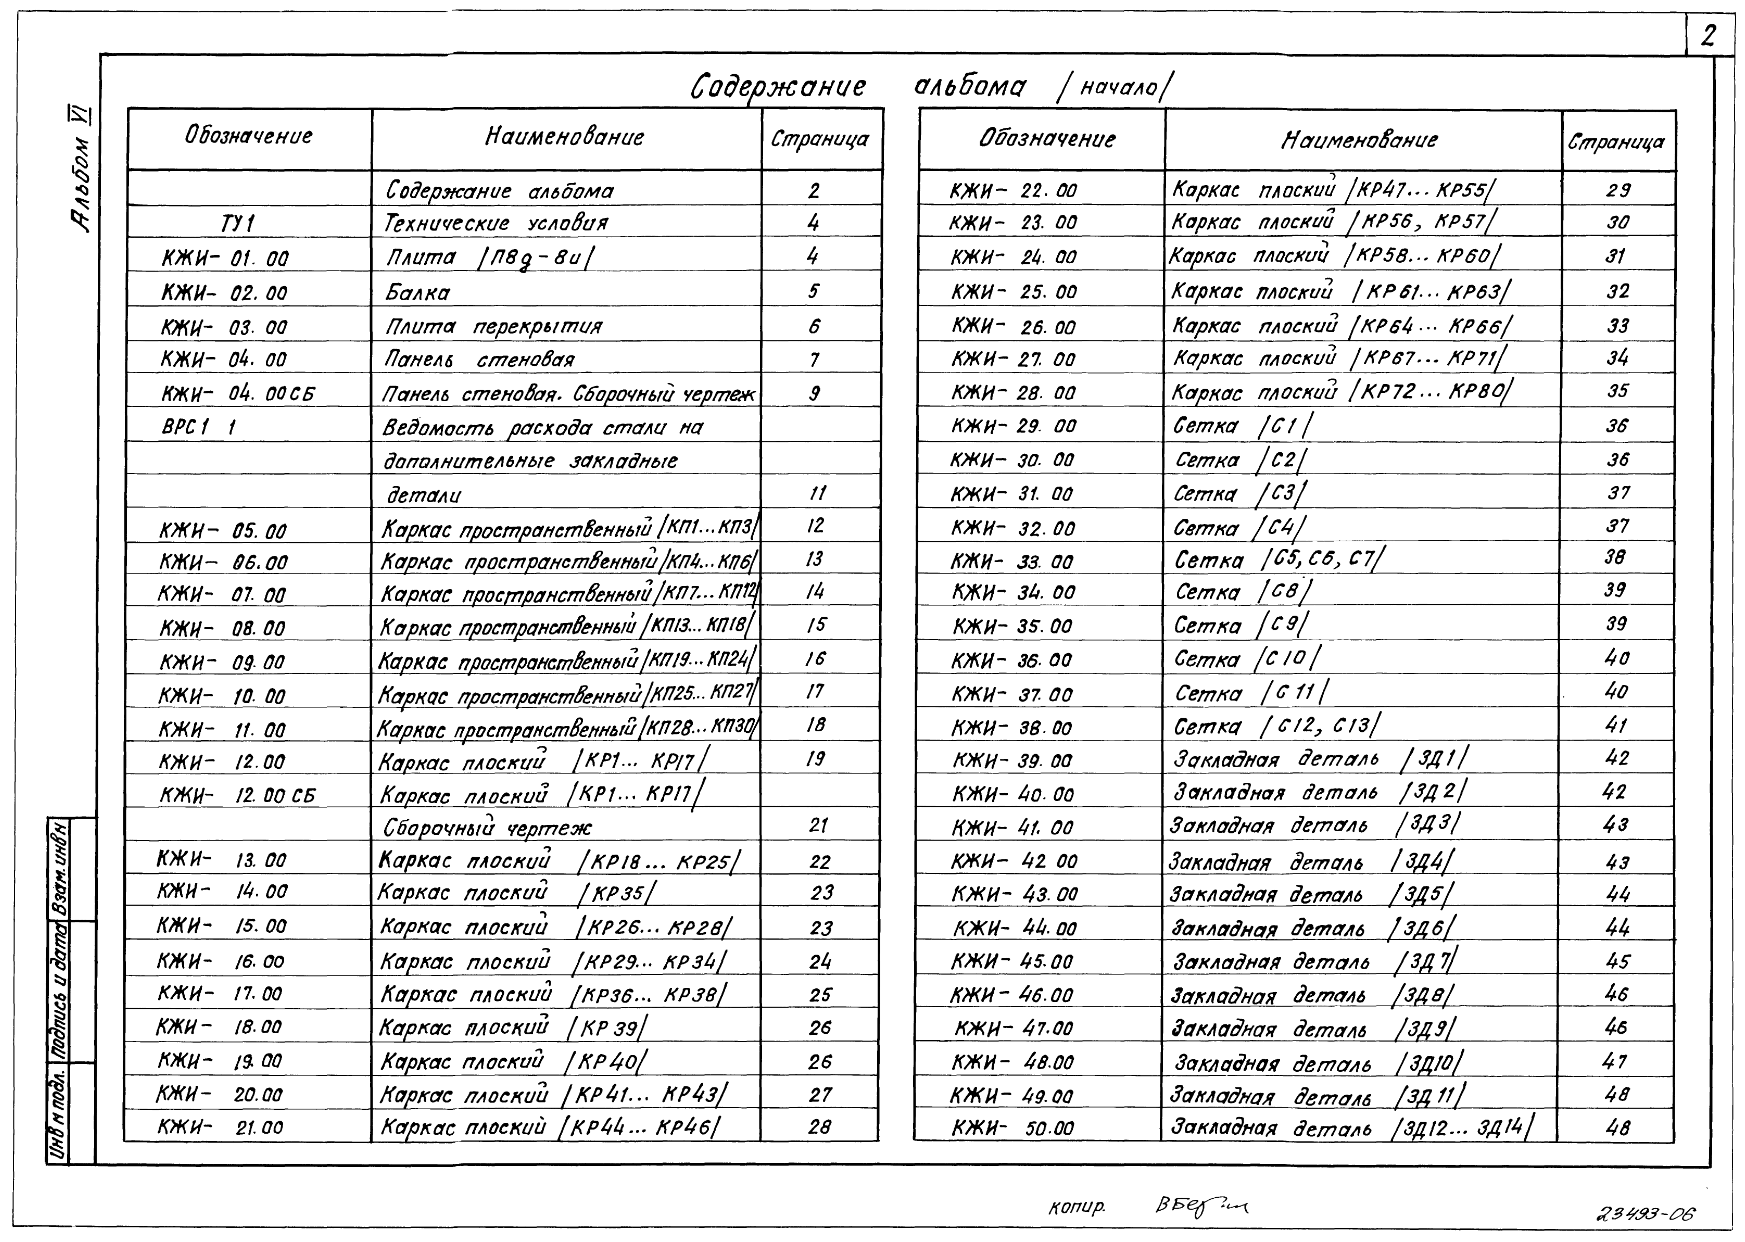 2
Содержание альбома /начало/
Альбом VI
Обозначение Наименование Страница
Содержание альбома 2
ТУ1 Технические условия 4
КЖИ- 01.00 Плита /П8д-8и/ 4
КЖИ- 02.00 Балка 5
КЖИ- 03.00 Плита перекрытия 6
КЖИ- 04.00 Панель стеновая 7
КЖИ- 04.00СБ Панель стеновая. Сборочный чертеж 9
ВРС1 1 Ведомость расхода стали на
дополнительные закладные
детали 11
КЖИ- 05.00 Каркас пространственный /КП1...КП3/ 12
КЖИ- 06.00 Каркас пространственный /КП4...КП6/ 13
КЖИ- 07.00 Каркас пространственный /КП7...КП12/ 14
КЖИ- 08.00 Каркас пространственный /КП13...КП18/ 15
КЖИ- 09.00 Каркас пространственный /КП19...КП24/ 16
КЖИ- 10.00 Каркас пространственный /КП25...КП27/ 17
КЖИ- 11.00 Каркас пространственный /КП28...КП30/ 18
КЖИ- 12.00 Каркас плоский /КР1... КР17/ 19
КЖИ- 12.00 СБ Каркас плоский /КР1... КР17/
Сборочный чертеж 21
КЖИ- 13.00 Каркас плоский /КР18... КР25/ 22
КЖИ- 14.00 Каркас плоский /КР35/ 23
КЖИ- 15.00 Каркас плоский /КР26... КР28/ 23
КЖИ- 16.00 Каркас плоский /КР29... КР34/ 24
КЖИ- 17.00 Каркас плоский /КР36... КР38/ 25
КЖИ- 18.00 Каркас плоский /КР39/ 26
КЖИ- 19.00 Каркас плоский /КР40/ 26
КЖИ- 20.00 Каркас плоский /КР41... КР43/ 27
КЖИ- 21.00 Каркас плоский /КР44... КР46/ 28
Обозначение Наименование Страница
КЖИ- 22.00 Каркас плоский /КР47... КР55/ 29
КЖИ- 23.00 Каркас плоский /КР56, КР57/ 30
КЖИ- 24.00 Каркас плоский /КР58... КР60/ 31
КЖИ- 25.00 Каркас плоский /КР61... КР63/ 32
КЖИ- 26.00 Каркас плоский /КР64... КР66/ 33
КЖИ- 27.00 Каркас плоский /КР67... КР71/ 34
КЖИ- 28.00 Каркас плоский /КР72... КР80/ 35
КЖИ- 29.00 Сетка /С1/ 36
КЖИ- 30.00 Сетка /С2/ 36
КЖИ- 31.00 Сетка /С3/ 37
КЖИ- 32.00 Сетка /С4/ 37
КЖИ- 33.00 Сетка /С5, С6, С7/ 38
КЖИ- 34.00 Сетка /С8/ 39
КЖИ- 35.00 Сетка /С9/ 39
КЖИ- 36.00 Сетка /С10/ 40
КЖИ- 37.00 Сетка /С11/ 40
КЖИ- 38.00 Сетка /С12, С13/ 41
КЖИ- 39.00 Закладная деталь /ЗД1/ 42
КЖИ- 40.00 Закладная деталь /ЗД2/ 42
КЖИ- 41.00 Закладная деталь /ЗД3/ 43
КЖИ- 42 00 Закладная деталь /ЗД4/ 43
КЖИ- 43.00 Закладная деталь /ЗД5/ 44
КЖИ- 44.00 Закладная деталь /ЗД6/ 44
КЖИ- 45.00 Закладная деталь /ЗД7/ 45
КЖИ- 46.00 Закладная деталь /ЗД8/ 46
КЖИ- 47.00 Закладная деталь /ЗД9/ 46
КЖИ- 48.00 Закладная деталь /ЗД10/ 47
КЖИ- 49.00 Закладная деталь /ЗД11/ 48
КЖИ- 50.00 Закладная деталь /ЗД12... ЗД14/ 48
Инв N подл. Подпись и дата Взам. инв N
копир.
23493-06